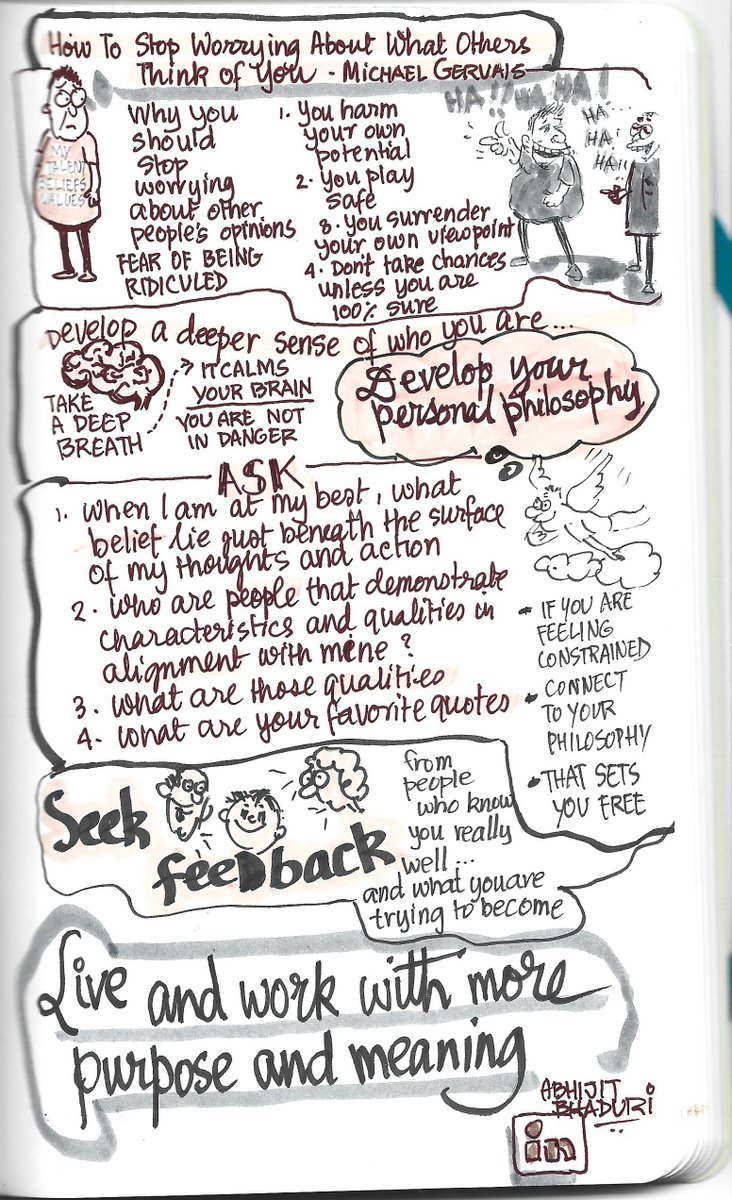 How To Stop Worrying About What Others
Think of You - Michael Gervais
MY
TALENT
BELIEFS
VALUES
Why you
should
stop
worrying
about other
people's opinions
FEAR OF BEING
RIDICULED
1. You harm
your own
potential
2. You play
safe
3. You surrender
your own viewpoint
4. Don't take chances
unless you are
100% sure
HA!! HA HA!
HA...
HA!
HA!!
Develop a deeper sense of who you are...
TAKE
A DEEP
BREATH
IT CALMS
YOUR BRAIN
YOU ARE NOT
IN DANGER
Develop your
personal philosophy
ASK
1. When I am at my best, what
belief lie just beneath the surface
of my thoughts and action
2. Who are people that demonstrate
characteristics and qualities in
alignment with mine?
3. What are those qualities
4. What are your favorite quotes
- IF YOU ARE
FEELING
CONSTRAINED
- CONNECT
TO YOUR
PHILOSOPHY
- THAT SETS
YOU FREE
Seek
feedback
from
people
who know
you really
well...
and what you are
trying to become
Live and work with more
purpose and meaning
ABHIJIT
BHADURI
in